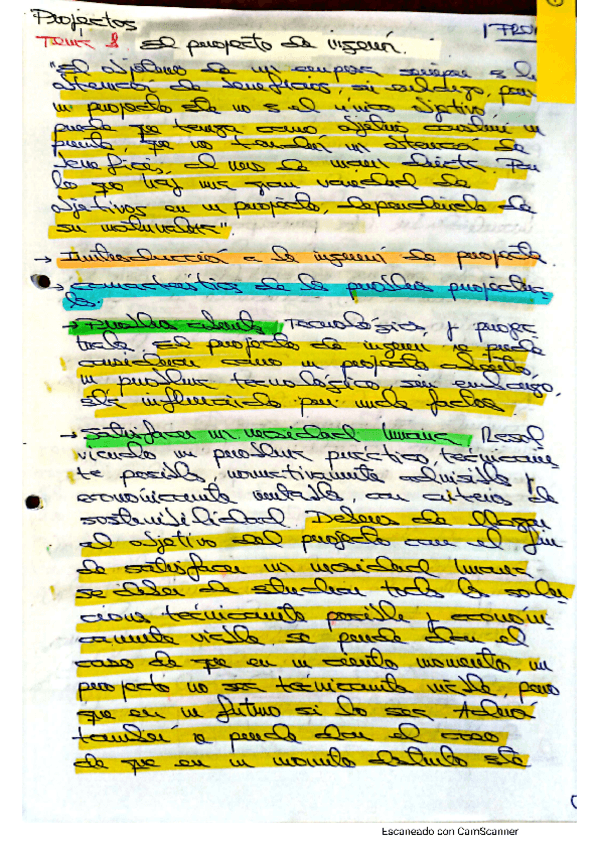 Projectos
Tema 1. El projecto de ingenri.
"El objetivo de un empresa siempre es la
obtención de beneficios, sin embargo, para
un projecto ste no es el único objetivo
puede que tenga como objetivo construir un
puente, que no tendrá un obtención de
beneficios, al meno de manera directa. Por
lo que hay una gran variedad de
objetivos en un projecto, dependiendo de
su naturaleza"
→ Introducción a la ingenrí de projectos.
→ característica de los posibles projectua
les.
→ Problema abierto Tecnológica, y projec
tuale. El projecto de ingenri no puede
considerar como un projecto abierto,
un problema tecnológico sin embargo,
stá influenciado por mucho factores
→ Satisfacer un necesidad humana Resol
viendo un problema práctico, técnicamen
te posible, normativamente admisible y
económicamente rentable, con criterios de
sostenibilidad. Debemos de llegar
el objetivo del projecto con el fin
de satisfacer un necesidad humana
se deben de estudiar toda las solu
ciones técnicamente posible y económi
camente viable, se puede dar el
caso de que en un cierto momento, un
projecto no sea técnicamente viable, pero
que en un futuro si lo sea. Además
también se puede dar el caso
de que en un momento sté
Escaneado con CamScanner